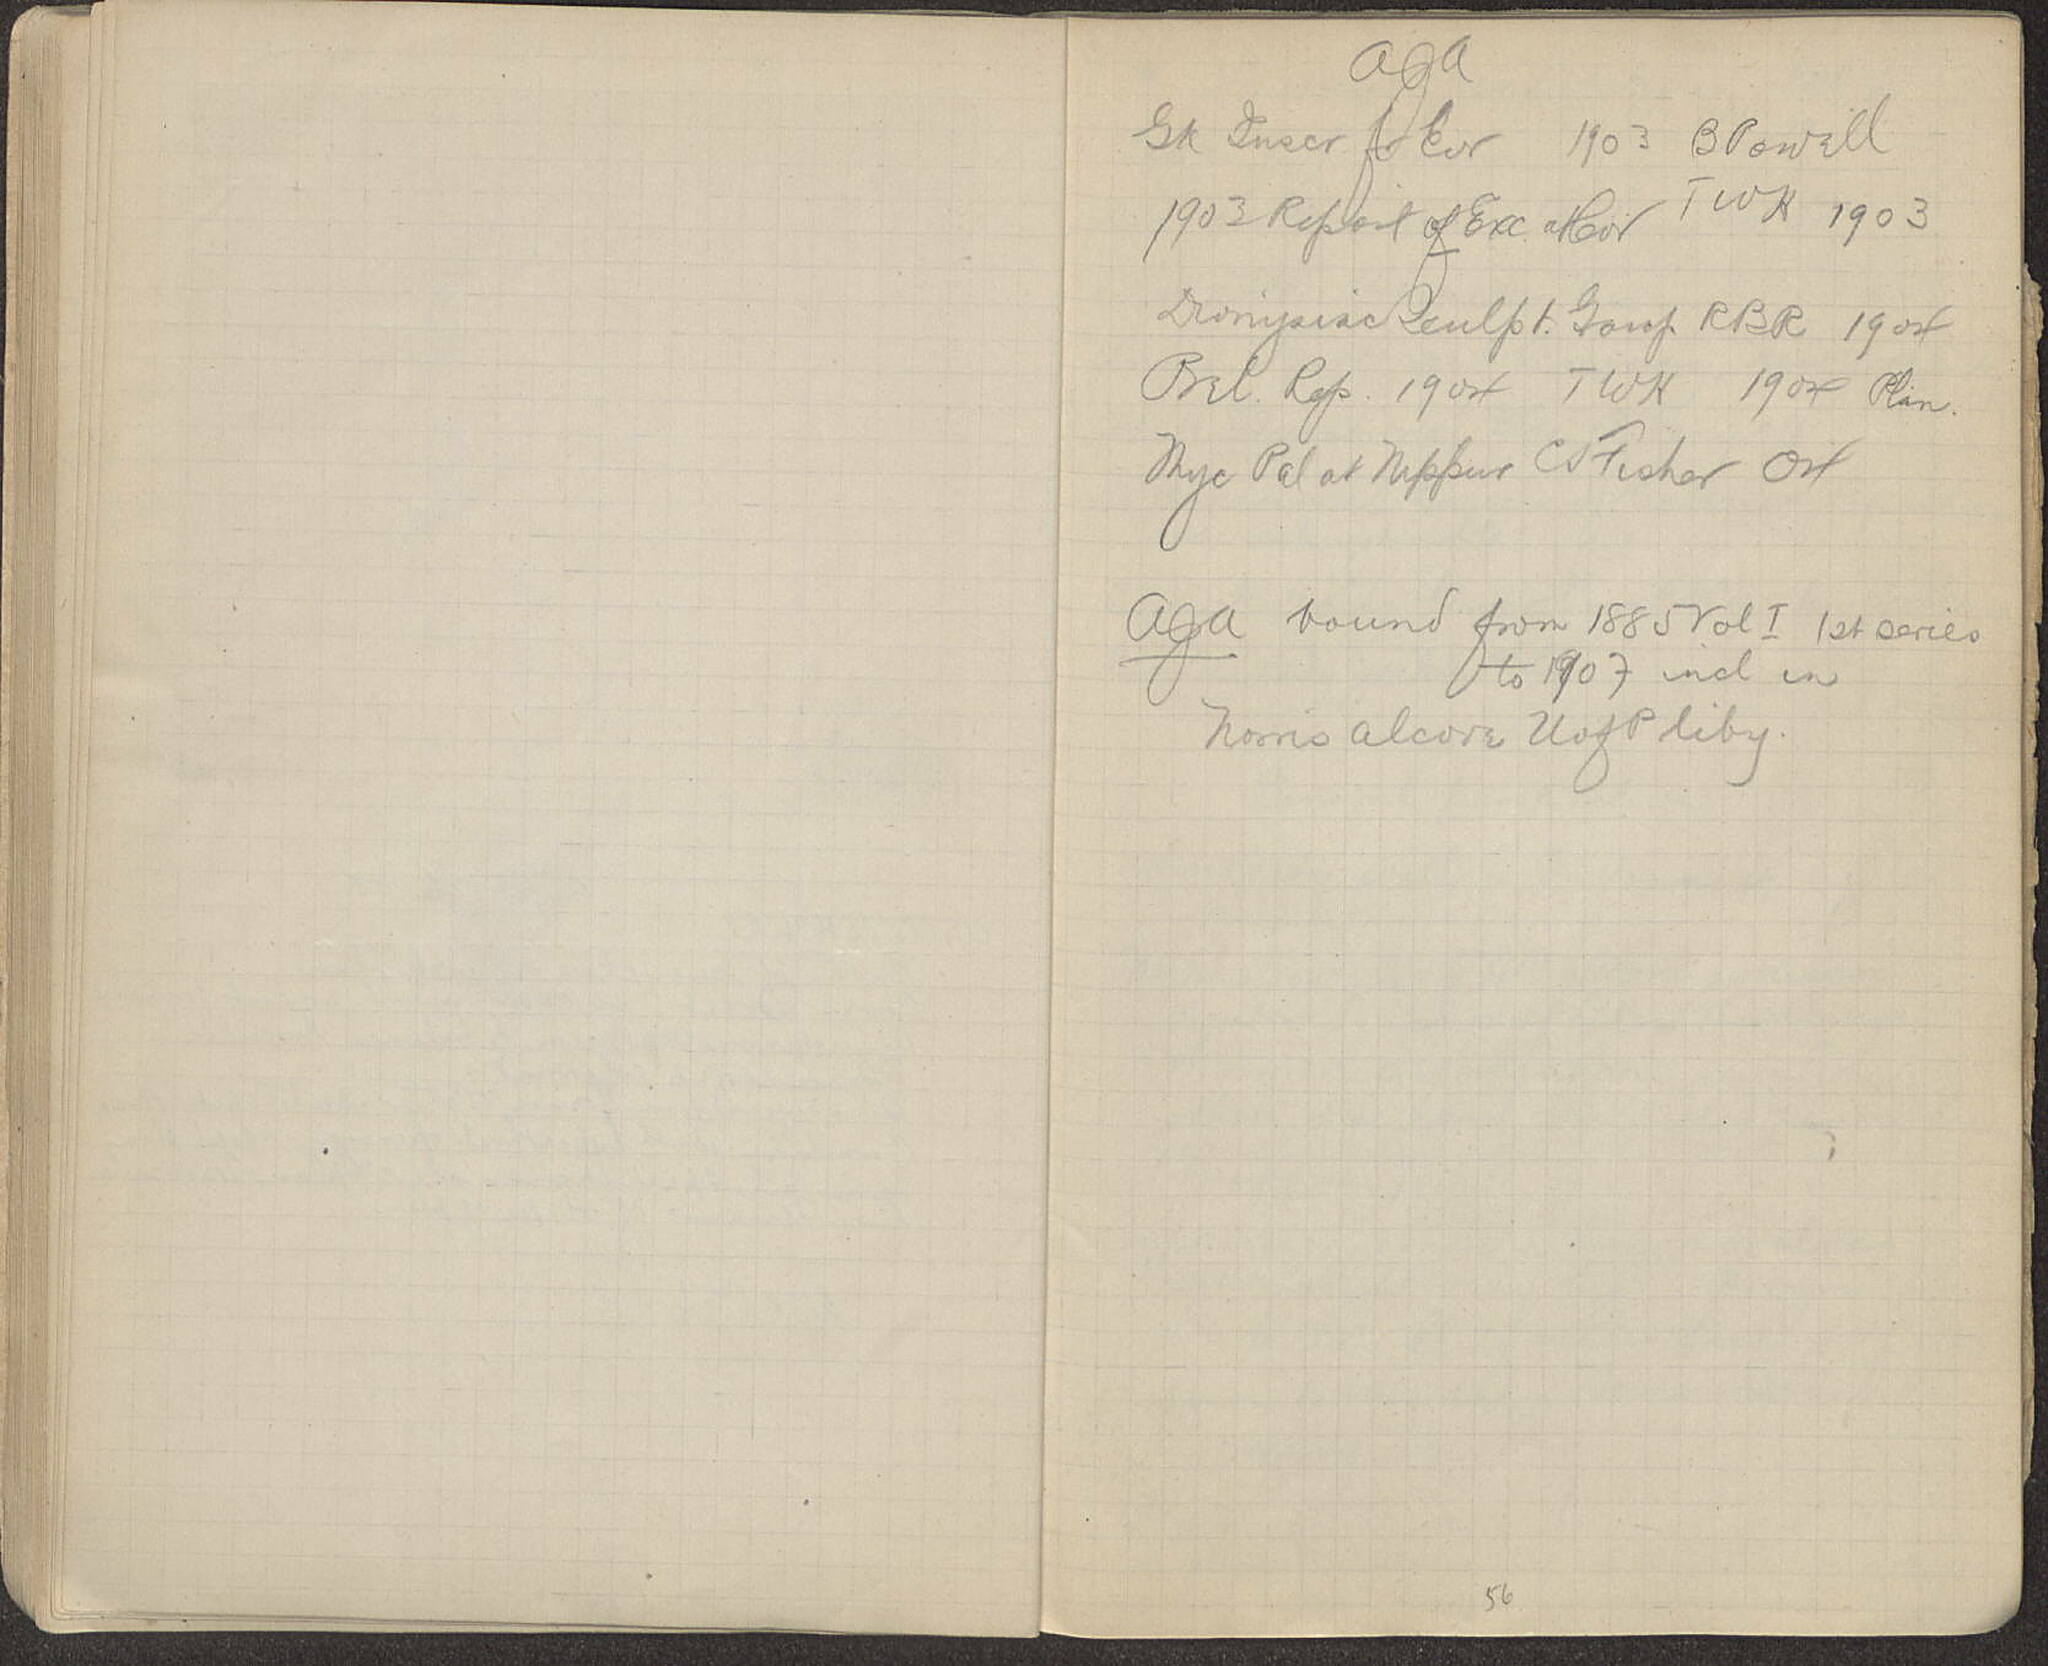 AJA
Gk Inscr fr Cor 1903 B Powell
1903 Report of Exc. at Cor TWH 1903
Dionysiac Sculpt. Group RBR 1904
Prel. Rep. 1904 TWH 1904 Plan.
Myc Pal at Nippur CS Fisher 04
AJA bound from 1885 Vol I 1st series
to 1907 incl in
Norris alcove U of P liby.
56